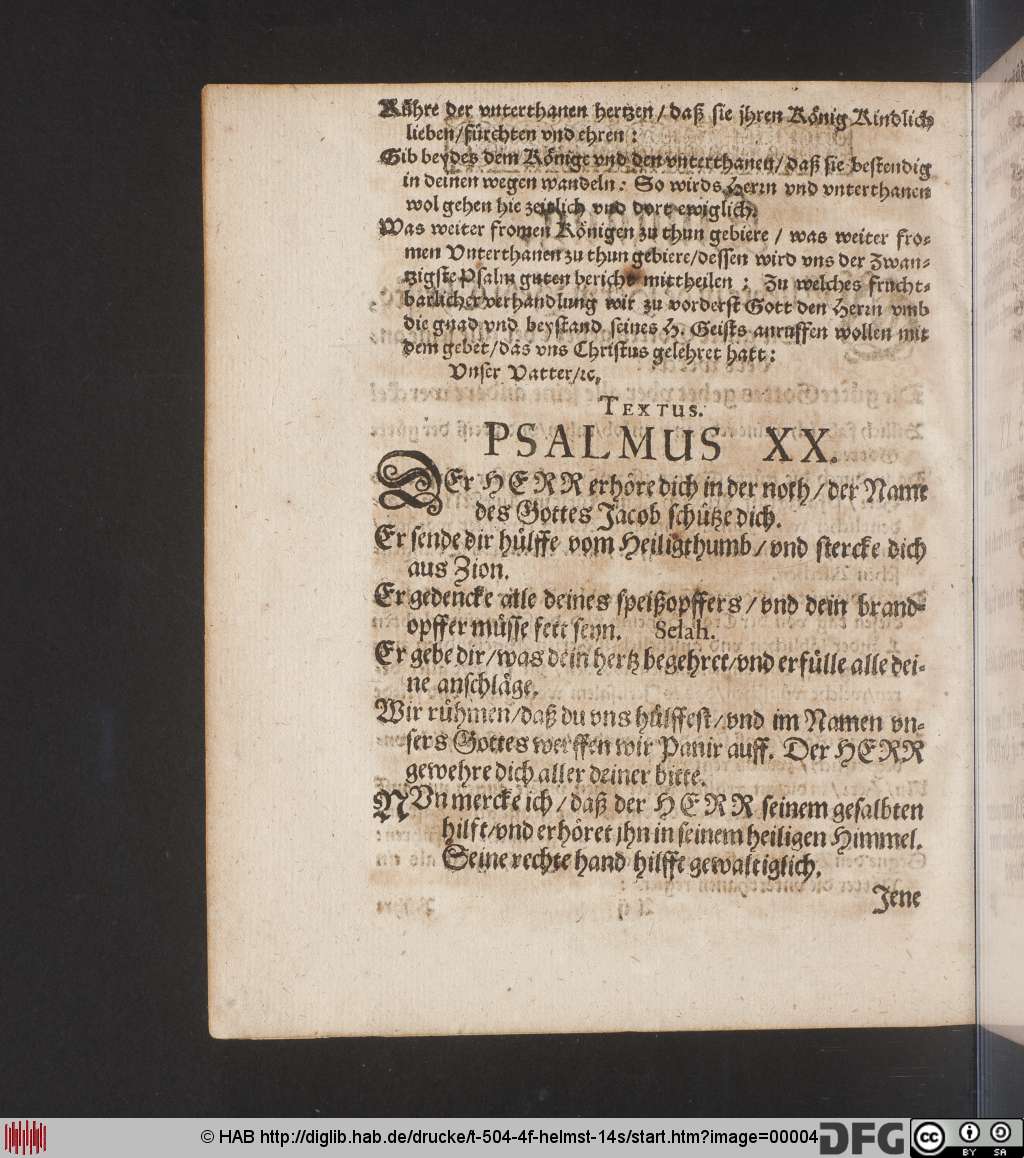 Rühre der vnterthanen hertzen / daß sie jhren König Kindlich
lieben/fürchten vnd ehren :
Gib beydes dem Könige vnd den vnterthanen/daß sie bestendig
in deinen wegen wandeln : So wirds Herrn vnd vnterthanen
wol gehen hie zeitlich vnd dort ewiglich.
Was weiter fromen Königen zu thun gebiere / was weiter fro-
men Vnterthanen zu thun gebiere/dessen wird vns der Zwan-
tzigste Psalm guten bericht mittheilen : Zu welches frucht-
barlicher verhandlung wir zu vorderst Gott den Herrn vmb
die gnad vnd beystand seines H. Geists anruffen wollen mit
dem gebet/das vns Christus gelehret hatt:
Vnser Vatter/ꝛc.
TEXTUS.
PSALMUS XX.
DEr HERR erhöre dich in der noth/der Name
des Gottes Jacob schütze dich.
Er sende dir hülffe vom Heiligthumb/vnd stercke dich
aus Zion.
Er gedencke alle deines speißopffers/vnd dein brand-
opffer müsse fett seyn. Selah.
Er gebe dir/was dein hertz begehret/vnd erfülle alle dei-
ne anschläge.
Wir rühmen/daß du vns hülffest/vnd im Namen vn-
sers Gottes werffen wir Panir auff. Der HERR
gewehre dich aller deiner bitte.
NVn mercke ich/daß der HERR seinem gesalbten
hilft/vnd erhöret jhn in seinem heiligen Himmel.
Seine rechte hand hilfft gewaltiglich.
Jene
© HAB http://diglib.hab.de/drucke/t-504-4f-helmst-14s/start.htm?image=00004
DFG
cc BY SA